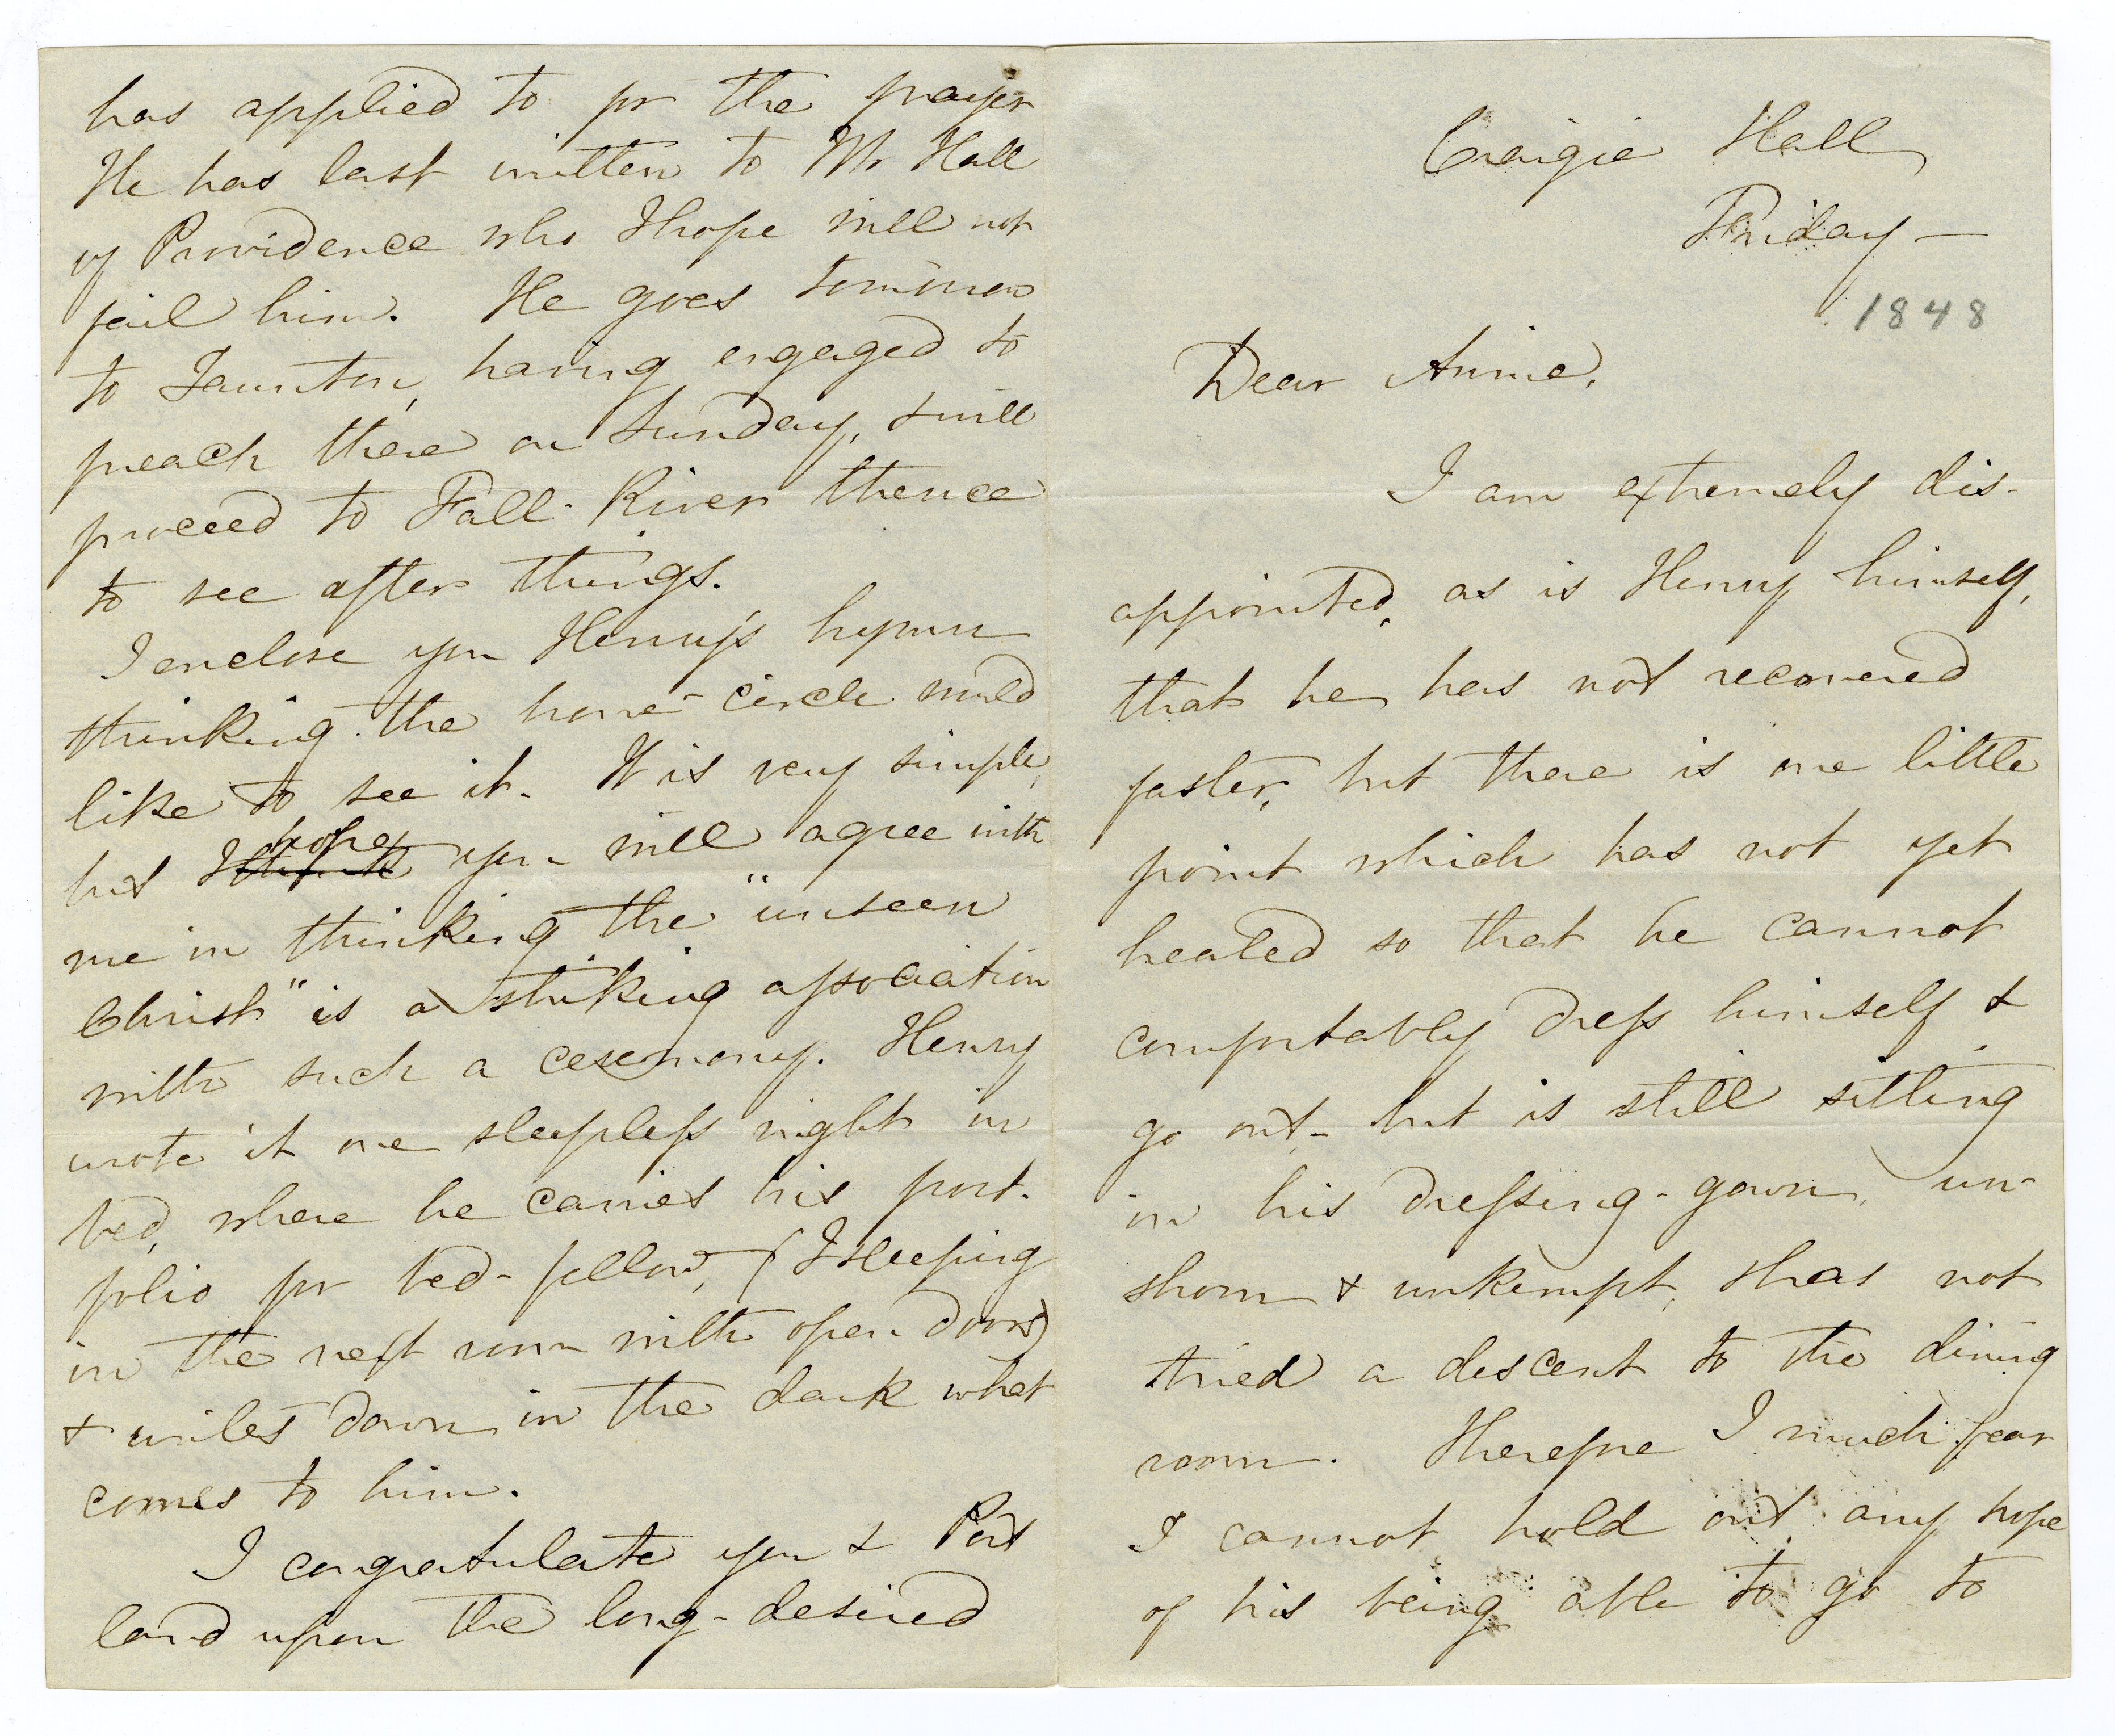 Craigie Hall
Friday —
1848
Dear Annie,
I am extremely dis-
appointed, as is Henry himself,
that he has not recovered
faster, but there is one little
point which has not yet
healed so that he cannot
comfortably dress himself &
go out - but is still sitting
in his dressing-gown, un-
shorn & unkempt, & has not
tried a descent to the dining
room. Therefore I much fear
I cannot hold out any hope
of his being able to go to
has applied to for the prayer
He has last written to Mr Hall
of Providence who I hope will not
fail him. He goes tomorrow
to Taunton, having engaged to
preach there on Sunday, & will
proceed to Fall-River thence
to see after things.
I enclose you Henry's hymn
thinking the home-circle would
like to see it. It is very simple,
but I think hope you will agree with
me in thinking the "unseen
Christ" is a striking association
with such a ceremony. Henry
wrote it one sleepless night in
bed, where he carries his port-
folio for bed-fellow, (I sleeping
in the next room with open doors)
& writes down in the dark what
comes to him.
I congratulate you & Port
land upon the long-desired